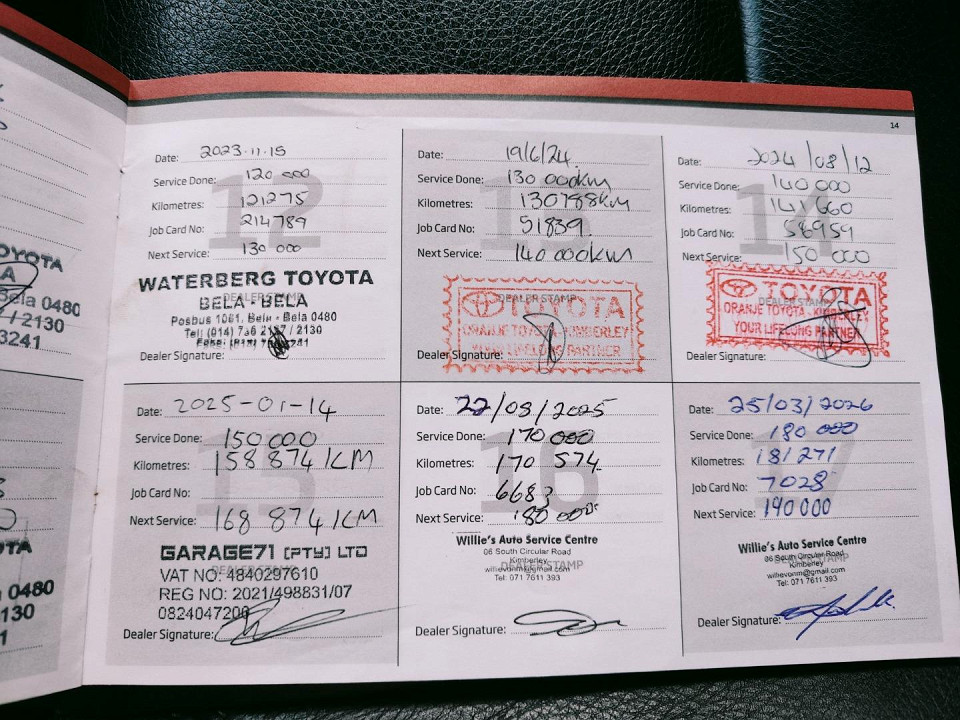 14
12
Date: 2023-11-15
Service Done: 120 000
Kilometres: 121275
Job Card No: 214789
Next Service: 130 000
WATERBERG TOYOTA
BELA - BELA
DEALER STAMP
Posbus 1061, Bela - Bela 0480
Tel: (014) 736 2137 / 2130
Dealer Signature:
Date: 19/6/24
Service Done: 130 000km
Kilometres: 130788km
Job Card No: 51839
Next Service: 140 000km
DEALER STAMP
TOYOTA
ORANJE TOYOTA - KIMBERLEY
YOUR LIFELONG PARTNER
Dealer Signature:
14
Date: 2024/08/12
Service Done: 140 000
Kilometres: 141 660
Job Card No: 58959
Next Service: 150 000
TOYOTA
DEALER STAMP
ORANJE TOYOTA - KIMBERLEY
YOUR LIFELONG PARTNER
Dealer Signature:
15
Date: 2025-01-14
Service Done: 150 000
Kilometres: 158 874 KM
Job Card No:
Next Service: 168 874 KM
GARAGE71 (PTY) LTD
DEALER STAMP
VAT NO: 4840297610
REG NO: 2021/498831/07
0824047200
Dealer Signature:
16
Date: 22/08/2025
Service Done: 170 000
Kilometres: 170 574
Job Card No: 6683
Next Service: 180 000
Willie's Auto Service Centre
06 South Circular Road
Kimberley
willievonm@gmail.com
DEALER STAMP
Tel: 071 7611 393
Dealer Signature:
17
Date: 25/03/2026
Service Done: 180 000
Kilometres: 181 271
Job Card No: 7028
Next Service: 190 000
Willie's Auto Service Centre
06 South Circular Road
Kimberley
DEALER STAMP
willievonm@gmail.com
Tel: 071 7611 393
Dealer Signature: